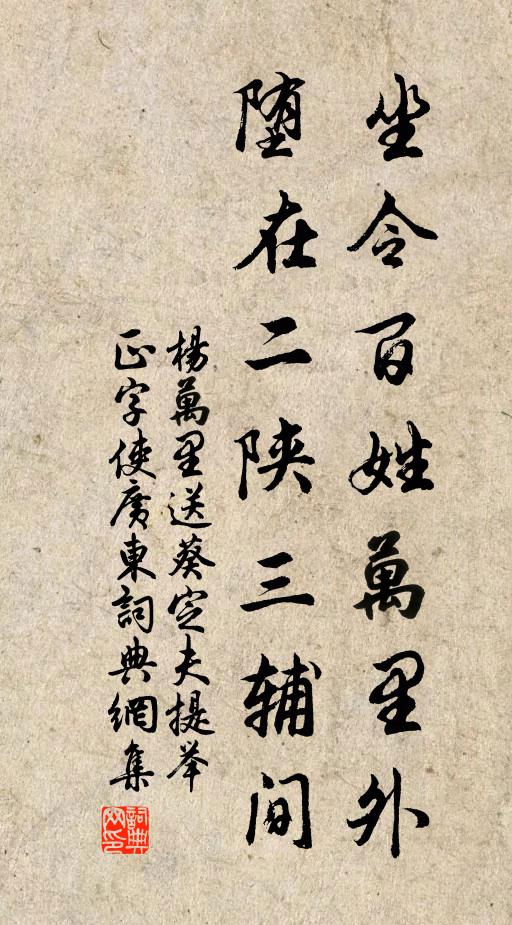 坐令百姓萬里外
堕在二陕三辅间
楊萬里送葵定夫提举
正字使廣東詞典網集
詞典网印